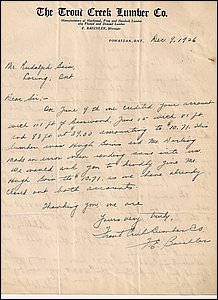 The Trout Creek Lumber Co.
Manufacturers of Hardwood, Pine and Hemlock Lumber
also Planed and Dressed Lumber
Manager
POWASSAN, ONT. Dec. 9, 1926
Mr. Rudolph
Loring, Ont
Dear Sir,-
On June 9th we credited your account
with 111 ft of Basswood, June 15 with 81 ft
and 83 ft at $39.00 amounting to $10.71. This
lumber was Hugh and Mr
made an error when sending name into us.
We would ask you to kindly give Mr
Hugh the $10.71, as we have already
closed out both accounts.
Thanking you we are
Yours very truly,
Trout Creek Lumber Co.